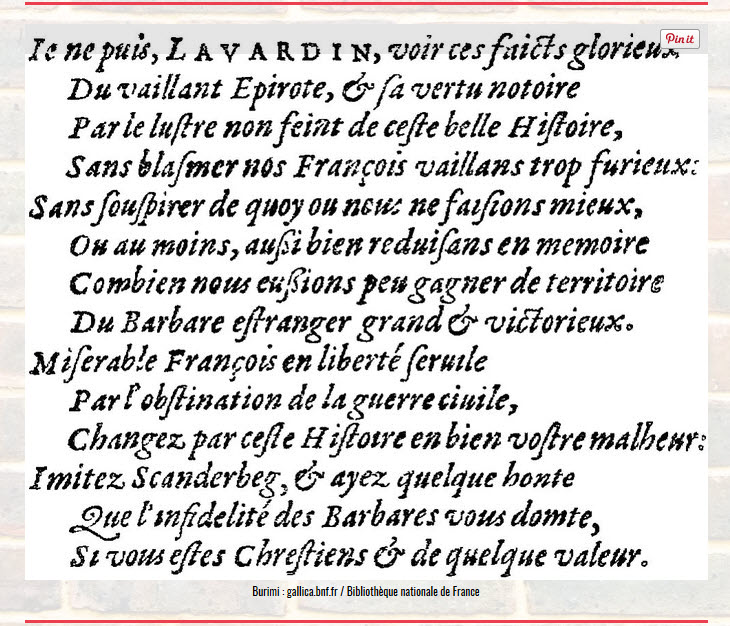 Pin it
Ie ne puis, LAVARDIN, voir ces faicts glorieux
Du vaillant Epirote, & ſa vertu notoire
Par le luſtre non feint de ceſte belle Hiſtoire,
Sans blaſmer nos François vaillans trop furieux:
Sans ſouſpirer de quoy ou nous ne faiſions mieux,
Ou au moins, auſsi bien reduiſans en memoire
Combien nous euſsions peu gagner de territoire
Du Barbare eſtranger grand & victorieux.
Miſerable François en liberté ſeruile
Par l'obſtination de la guerre ciuile,
Changez par ceſte Hiſtoire en bien voſtre malheur:
Imitez Scanderbeg, & ayez quelque honte
Que l'infidelité des Barbares vous domte,
Si vous eſtes Chreſtiens & de quelque valeur.
Burimi : gallica.bnf.fr / Bibliothèque nationale de France